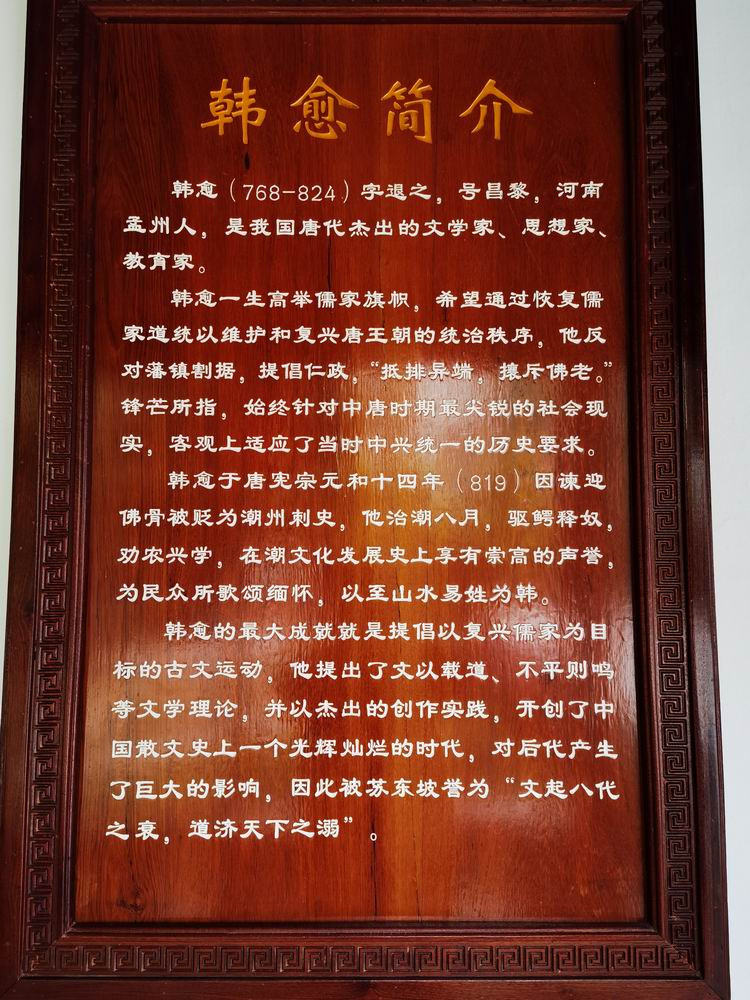 韩愈简介
韩愈（768-824）字退之，号昌黎，河南
孟州人，是我国唐代杰出的文学家、思想家、
教育家。
韩愈一生高举儒家旗帜，希望通过恢复儒
家道统以维护和复兴唐王朝的统治秩序，他反
对藩镇割据，提倡仁政，“抵排异端，攘斥佛老。”
锋芒所指，始终针对中唐时期最尖锐的社会现
实，客观上适应了当时中兴统一的历史要求。
韩愈于唐宪宗元和十四年（819）因谏迎
佛骨被贬为潮州刺史，他治潮八月，驱鳄释奴，
劝农兴学，在潮文化发展史上享有崇高的声誉，
为民众所歌颂缅怀，以至山水易姓为韩。
韩愈的最大成就就是提倡以复兴儒家为目
标的古文运动，他提出了文以载道、不平则鸣
等文学理论，并以杰出的创作实践，开创了中
国散文史上一个光辉灿烂的时代，对后代产生
了巨大的影响，因此被苏东坡誉为“文起八代
之衰，道济天下之溺”。